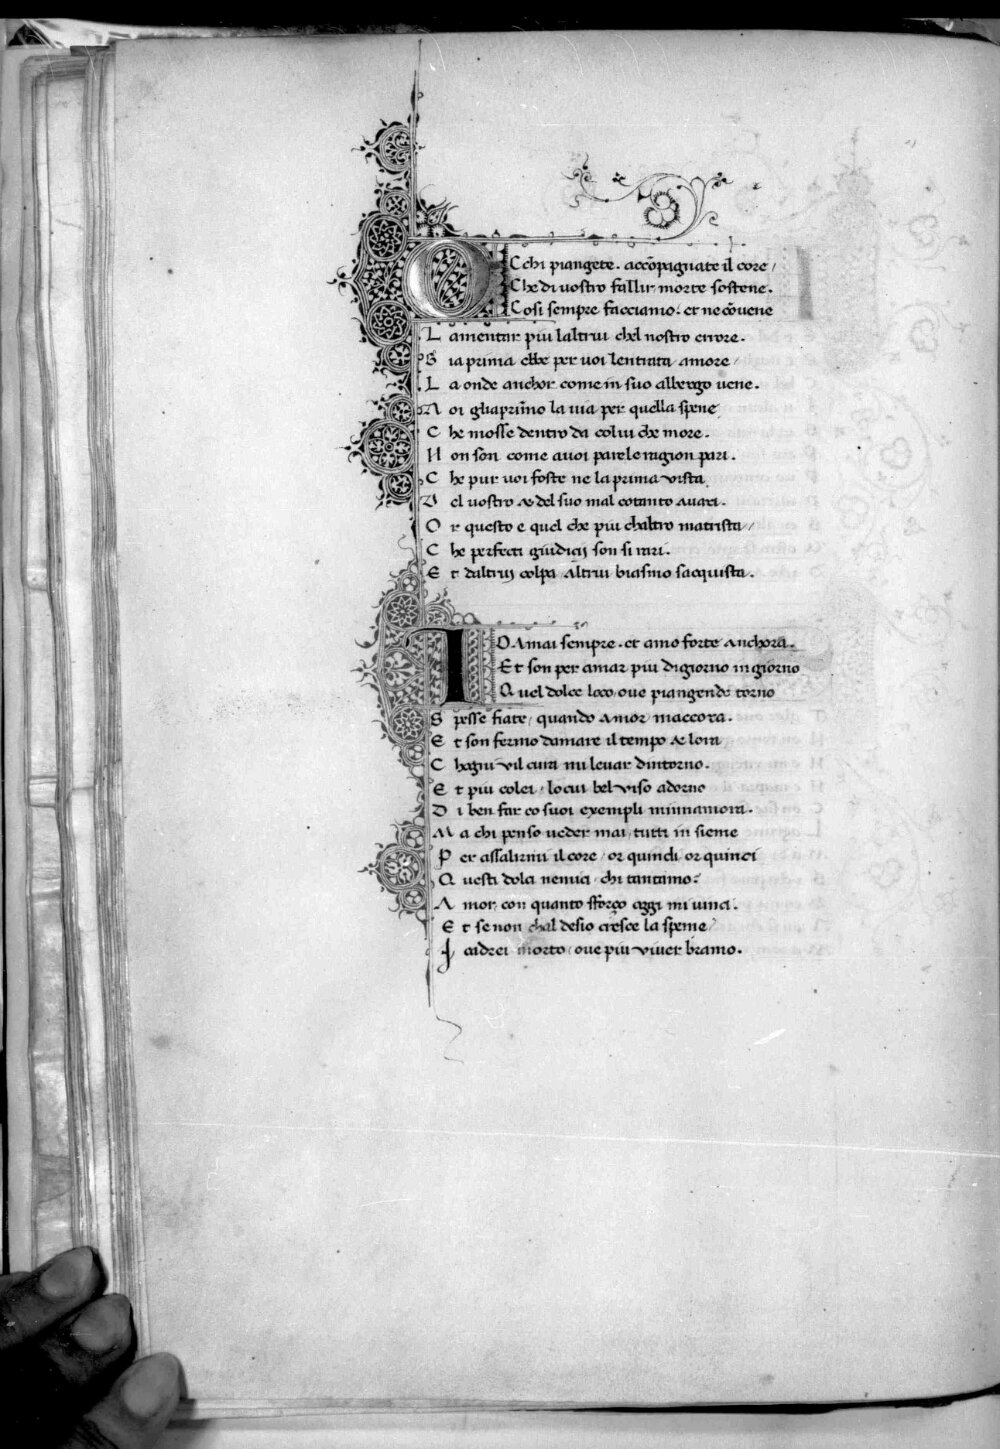 OCchi piangete. accõpagnate il core/
Che di uostro fallir morte sostene.
Cosi sempre facciamo. et ne cõuene
L amentar piu laltrui chel nostro errore.
S ia prima ebbe per uoi lentrata amore
L a onde anchor come in suo albergo uene.
N oi gliaprimo la uia per quella spene
C he mosse dentro da colui che more.
N on son come auoi par le ragion pari.
C he pur uoi foste ne la prima vista
D el uostro & del suo mal cotanto auari.
O r questo e quel che piu chaltro matrista//
C he perfecti giudicij son si rari.
E t daltruj colpa Altrui biasmo sacquista.
IO Amai sempre. et amo forte Anchora.
Et son per amar piu di giorno in giorno
Quel dolce loco oue piangendo torno
S pesse fiate/ quando Amor maccora.
E t son fermo damare il tempo & lora
C hogni vil cura mi leuar dintorno.
E t piu colei/ lo cui bel viso adorno
D i ben far co suoi exempli minnamora.
M a chi penso ueder mai tutti in sieme
P er assalirmi il core/ or quindi or quinci
Q uesti dolci nemici/ chi tantamo?
A mor con quanto sforço oggi mi uinci.
E t se non chal desio cresce la speme
I cadrei morto/ oue piu viuer bramo.